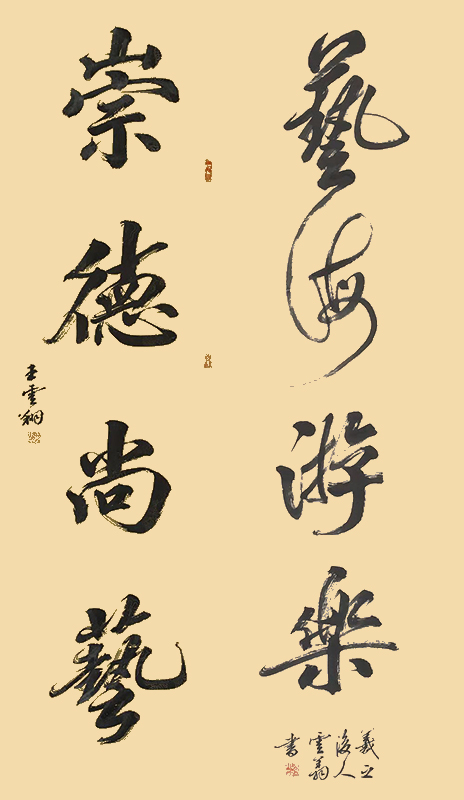 藝海游樂
義之
後人
雲翁
書
崇德尚藝
王雲翔